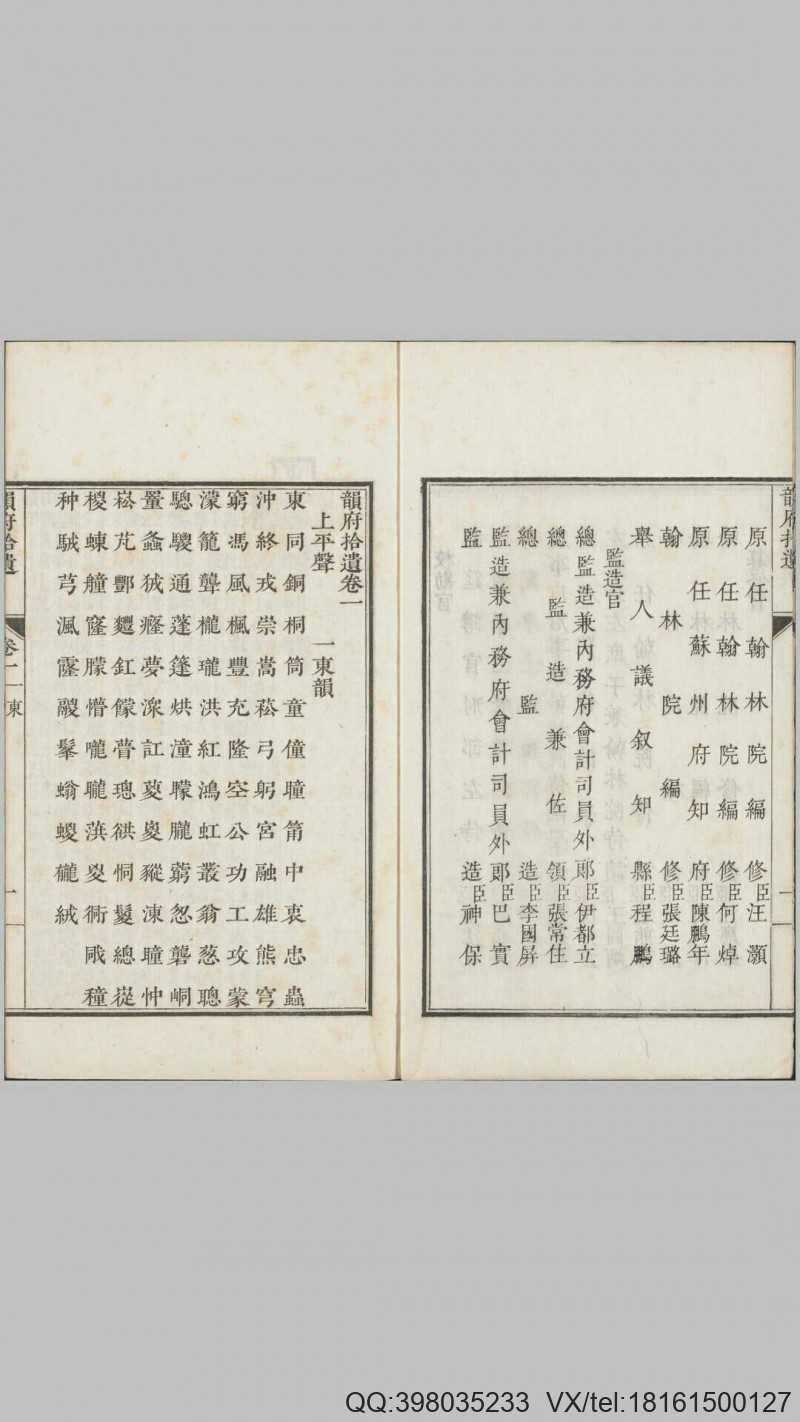 原任翰林院編修臣汪灝
原任翰林院編修臣何焯
原任蘇州府知府臣陳鵬年
翰林院編修臣張廷璐
舉人議叙知縣臣程鵬
監造官
總監造兼內務府會計司員外郎臣伊都立
總監造兼佐領臣張常住
總監造臣李國屏
監造兼內務府會計司員外郎臣巴實
監造臣神保
韻府拾遺卷一
上平聲 一東韻
東同銅桐筒童僮瞳筩中衷忠蟲
沖終戎崇嵩菘弓躬宮融雄熊穹
窮馮風楓豐充隆空公功工攻蒙
濛籠聾櫳瓏洪紅鴻虹叢翁蔥聰
驄騣通蓬篷烘潼朦朧藭怱礱峒
螽狨癃夢訌嵏豵涷曈忡
崧芃酆釭饛瞢璁谼恫鬉總
椶蝀艟窿朦懵嚨曨衕彤穜
种芎渢霳鬷鬔螉蝬礲絨
韻府拾遺
卷一 一東
一
QQ:398035233 VX/tel:18161500127